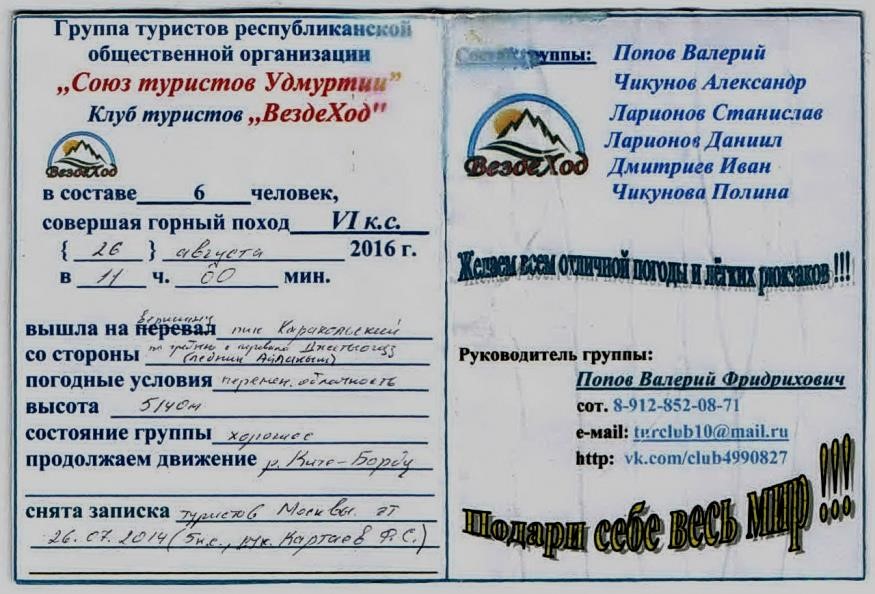 Группа туристов республиканской
общественной организации
„Союз туристов Удмуртии”
Клуб туристов „ВездеХод"
ВездеХод
в составе 6 человек,
совершая горный поход VI к.с.
{ 26 } августа 2016 г.
в 11 ч. 00 мин.
вершину
вышла на перевал пик Каракольский
со стороны по гребню с перевала Джетыогуз
(ледник Айланыш)
погодные условия перемен. облачность
высота 5140м
состояние группы хорошее
продолжаем движение р. Ките-Борду
снята записка туристов Москвы. от
26.07.2014 (5к.с., рук. Картаев Ф.С.)
Состав группы: Попов Валерий
Чикунов Александр
Ларионов Станислав
Ларионов Даниил
Дмитриев Иван
Чикунова Полина
ВездеХод
Желаем всем отличной погоды и лёгких рюкзаков !!!
Руководитель группы:
Попов Валерий Фридрихович
сот. 8-912-852-08-71
е-майл: turclub10@mail.ru
http: vk.com/club4990827
Подари себе весь мир !!!